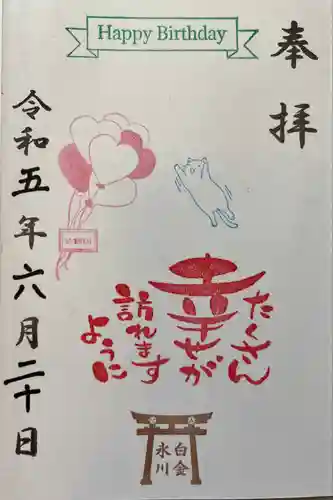 Happy Birthday
奉拝
たくさん
幸せが
訪れます
ように
白金
氷川
令和五年六月二十日